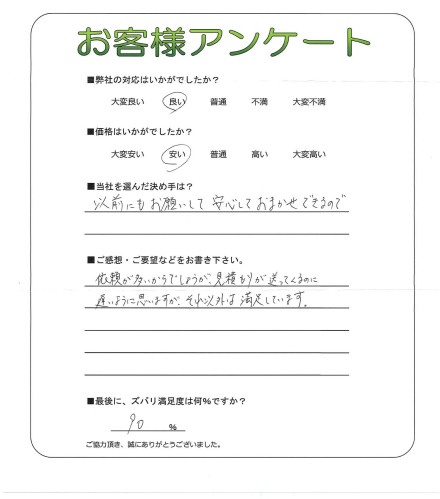 お客様アンケート
■弊社の対応はいかがでしたか?
大変良い 良い 普通 不満 大変不満
■価格はいかがでしたか?
大変安い 安い 普通 高い 大変高い
■当社を選んだ決め手は?
以前にもお願いして安心しておまかせできるので
■ご感想・ご要望などをお書き下さい。
依頼が多いからでしょうが、見積もりが送ってくるのに
遅いように思いますが、それ以外は満足しています。
■最後に、ズバリ満足度は何%ですか?
90 %
ご協力頂き、誠にありがとうございました。